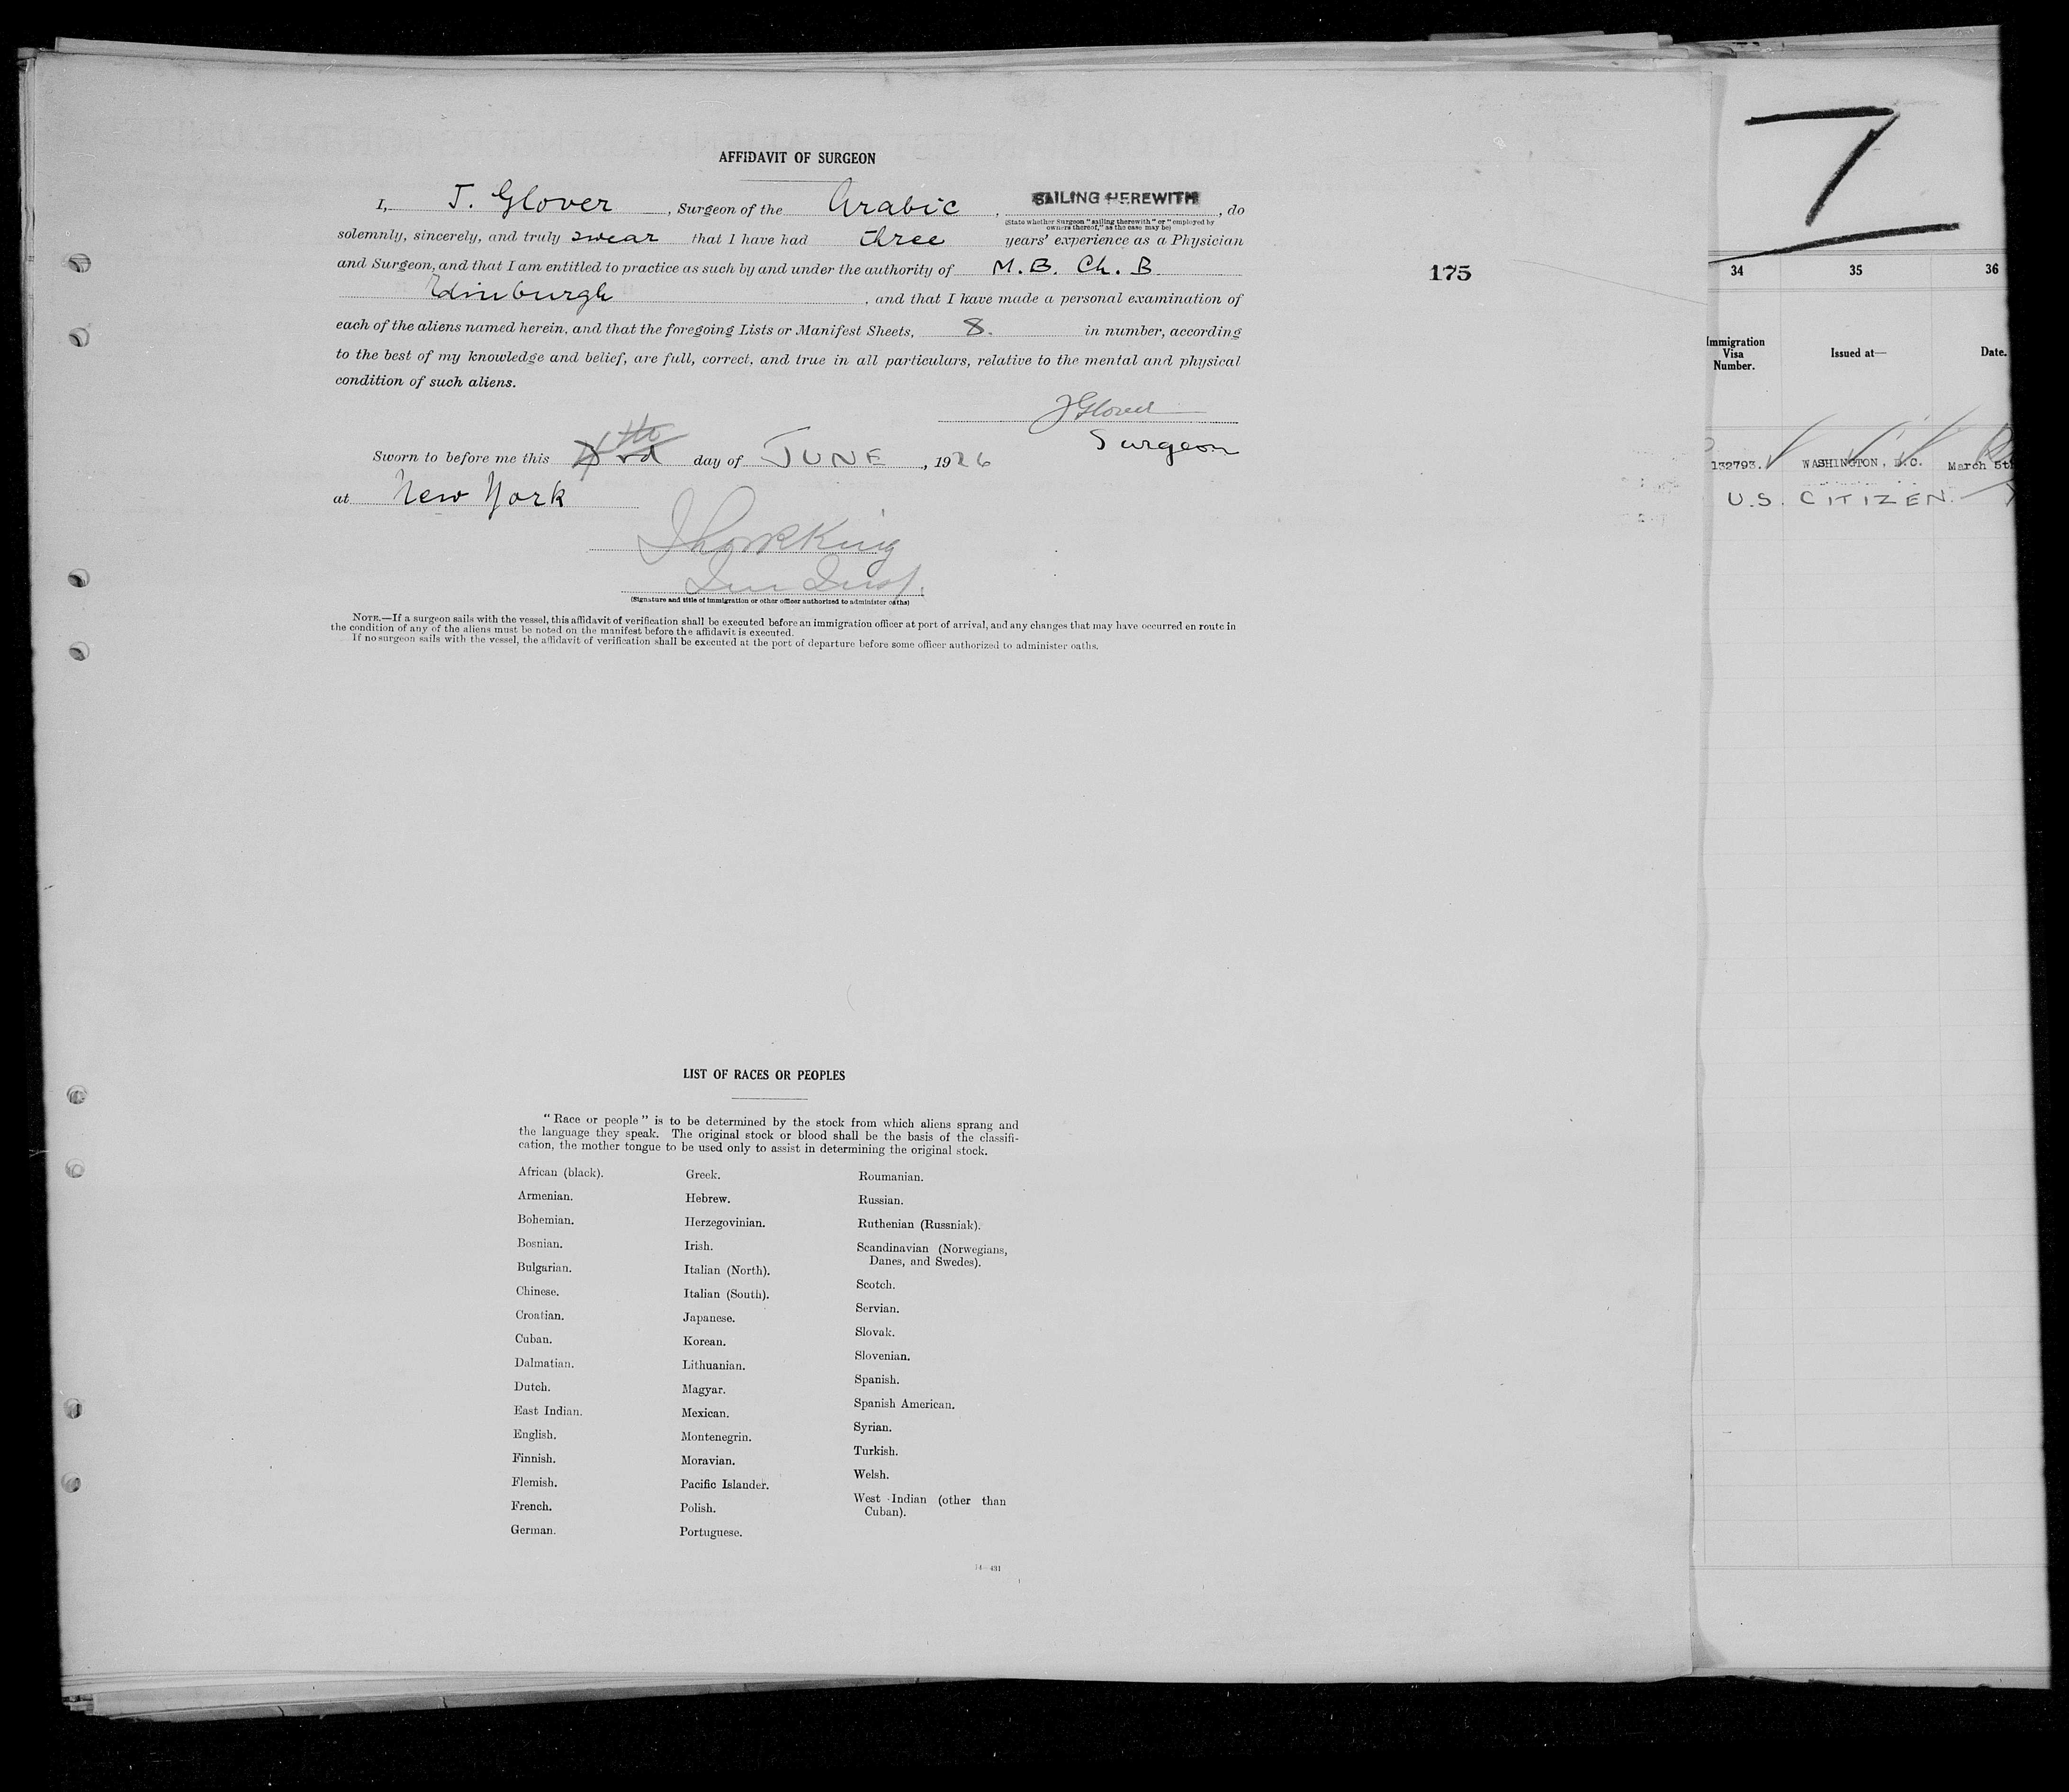 AFFIDAVIT OF SURGEON
I, J. Glover, Surgeon of the Arabic, SAILING HEREWITH, do
(State whether Surgeon "sailing therewith" or "employed by
owners thereof," as the case may be)
solemnly, sincerely, and truly swear that I have had three years' experience as a Physician
and Surgeon, and that I am entitled to practice as such by and under the authority of M. B. Ch. B
Edinburgh, and that I have made a personal examination of
each of the aliens named herein, and that the foregoing Lists or Manifest Sheets, 8. in number, according
to the best of my knowledge and belief, are full, correct, and true in all particulars, relative to the mental and physical
condition of such aliens.
J Glover
Surgeon
Sworn to before me this 4th day of JUNE, 1926
at New York
King
Imm Insp.
(Signature and title of immigration or other officer authorized to administer oaths)
NOTE.—If a surgeon sails with the vessel, this affidavit of verification shall be executed before an immigration officer at port of arrival, and any changes that may have occurred en route in
the condition of any of the aliens must be noted on the manifest before the affidavit is executed.
If no surgeon sails with the vessel, the affidavit of verification shall be executed at the port of departure before some officer authorized to administer oaths.
175
LIST OF RACES OR PEOPLES
"Race or people" is to be determined by the stock from which aliens sprang and
the language they speak. The original stock or blood shall be the basis of the classifi-
cation, the mother tongue to be used only to assist in determining the original stock.
African (black).
Armenian.
Bohemian.
Bosnian.
Bulgarian.
Chinese.
Croatian.
Cuban.
Dalmatian.
Dutch.
East Indian.
English.
Finnish.
Flemish.
French.
German.
Greek.
Hebrew.
Herzegovinian.
Irish.
Italian (North).
Italian (South).
Japanese.
Korean.
Lithuanian.
Magyar.
Mexican.
Montenegrin.
Moravian.
Pacific Islander.
Polish.
Portuguese.
Roumanian.
Russian.
Ruthenian (Russniak).
Scandinavian (Norwegians,
Danes, and Swedes).
Scotch.
Servian.
Slovak.
Slovenian.
Spanish.
Spanish American.
Syrian.
Turkish.
Welsh.
West Indian (other than
Cuban).
14—431
7
34 35 36
Immigration
Visa
Number.
Issued at—
Date.
132793. WASHINGTON, D.C. March 5th
U.S. CITIZEN.